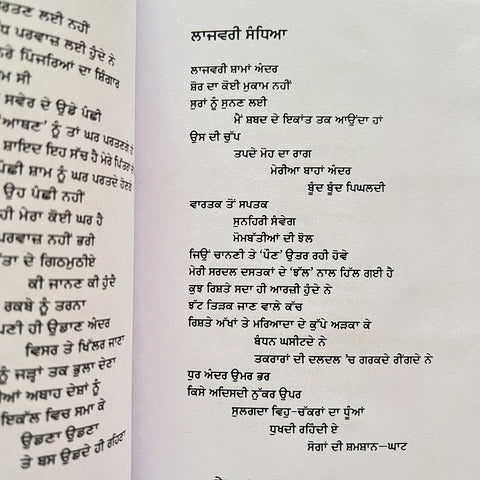 ਪਰਤਣ ਲਈ ਨਹੀਂ
ਪਰਵਾਜ਼ ਲਈ ਹੁੰਦੇ ਨੇ
ਪਿੰਜਰਿਆਂ ਦਾ ਸ਼ਿੰਗਾਰ
ਸੀ
ਸਵੇਰ ਦੇ ਉਡੇ ਪੰਛੀ
'ਆਸ਼ਣ' ਨੂੰ ਤਾਂ ਘਰ ਪਰਤਣਗੇ
ਸ਼ਾਇਦ ਇਹ ਸੱਚ ਹੈ ਮੇਰੇ ਪਿੱਤਰ
ਪੰਛੀ ਸ਼ਾਮ ਨੂੰ ਘਰ ਪਰਤਦੇ ਹੋਣਗੇ
ਉਹ ਪੰਛੀ ਨਹੀਂ
ਹੀ ਮੇਰਾ ਕੋਈ ਘਰ ਹੈ
ਪਰਵਾਜ਼ ਨਹੀਂ ਭਰੀ
ਦਾ ਦੇ ਗਿਠਮੁਠੀਏ
ਕੀ ਜਾਣਨ ਕੀ ਹੁੰਦੈ
ਰਕਬੇ ਨੂੰ ਤਰਨਾ
ਹੀ ਉਡਾਣ ਅੰਦਰ
ਵਿਸਰ ਤੇ ਖਿੱਲਰ ਜਾਣਾ
ਨੂੰ ਜੜ੍ਹਾਂ ਤਕ ਭੁਲਾ ਦੇਣਾ
ਅਥਾਹ ਦੇਸ਼ਾਂ ਨੂੰ
ਇਕੱਲ ਵਿਚ ਸਮਾ ਕੇ
ਉਡਣਾ ਉਡਣਾ
ਤੇ ਬਸ ਉਡਦੇ ਹੀ ਰਹਿਣਾ
ਲਾਜਵਰੀ ਸੰਧਿਆ
ਲਾਜਵਰੀ ਸ਼ਾਮਾਂ ਅੰਦਰ
ਸ਼ੋਰ ਦਾ ਕੋਈ ਮੁਕਾਮ ਨਹੀਂ
ਸੁਰਾਂ ਨੂੰ ਸੁਨਣ ਲਈ
ਮੈਂ ਸ਼ਬਦ ਦੇ ਇਕਾਂਤ ਤਕ ਆਉਂਦਾ ਹਾਂ
ਉਸ ਦੀ ਚੁੱਪ
ਤਪਦੇ ਮੋਹ ਦਾ ਰਾਗ
ਮੇਰੀਆ ਬਾਹਾਂ ਅੰਦਰ
ਬੂੰਦ ਬੂੰਦ ਪਿਘਲਦੀ
ਵਾਰਤਕ ਤੋਂ ਸਪਤਕ
ਸੁਨਹਿਰੀ ਸੰਵੇਗ
ਮੋਮਬੱਤੀਆਂ ਦੀ ਝੋਲ
ਜਿਉਂ ਚਾਨਣੀ ਤੇ 'ਪੌਣ' ਉਤਰ ਰਹੀ ਹੋਵੇ
ਮੇਰੀ ਸਰਦਲ ਦਸਤਕਾਂ ਦੇ 'ਝੱਲ' ਨਾਲ ਹਿੱਲ ਗਈ ਹੈ
ਕੁਝ ਰਿਸ਼ਤੇ ਸਦਾ ਹੀ ਆਰਜ਼ੀ ਹੁੰਦੇ ਨੇ
ਝੱਟ ਤਿੜਕ ਜਾਣ ਵਾਲੇ ਕੱਚ
ਰਿਸ਼ਤੇ ਅੱਖਾਂ ਤੇ ਮਰਿਆਦਾ ਦੇ ਕੁੱਪੇ ਅੜਕਾ ਕੇ
ਬੰਧਨ ਘਸੀਟਦੇ ਨੇ
ਤਕਰਾਰਾਂ ਦੀ ਦਲਦਲ 'ਚ ਗਰਕਦੇ ਰੀਂਗਦੇ ਨੇ
ਧੁਰ ਅੰਦਰ ਉਮਰ ਭਰ
ਕਿਸੇ ਅਦਿਸਦੀ ਨੁੱਕਰ ਉਪਰ
ਸੁਲਗਦਾ ਵਿਹੁ-ਚੱਕਰਾਂ ਦਾ ਧੂੰਆਂ
ਧੁਖਦੀ ਰਹਿੰਦੀ ਏ
ਸੋਗਾਂ ਦੀ ਸ਼ਮਸ਼ਾਨ—ਘਾਟ